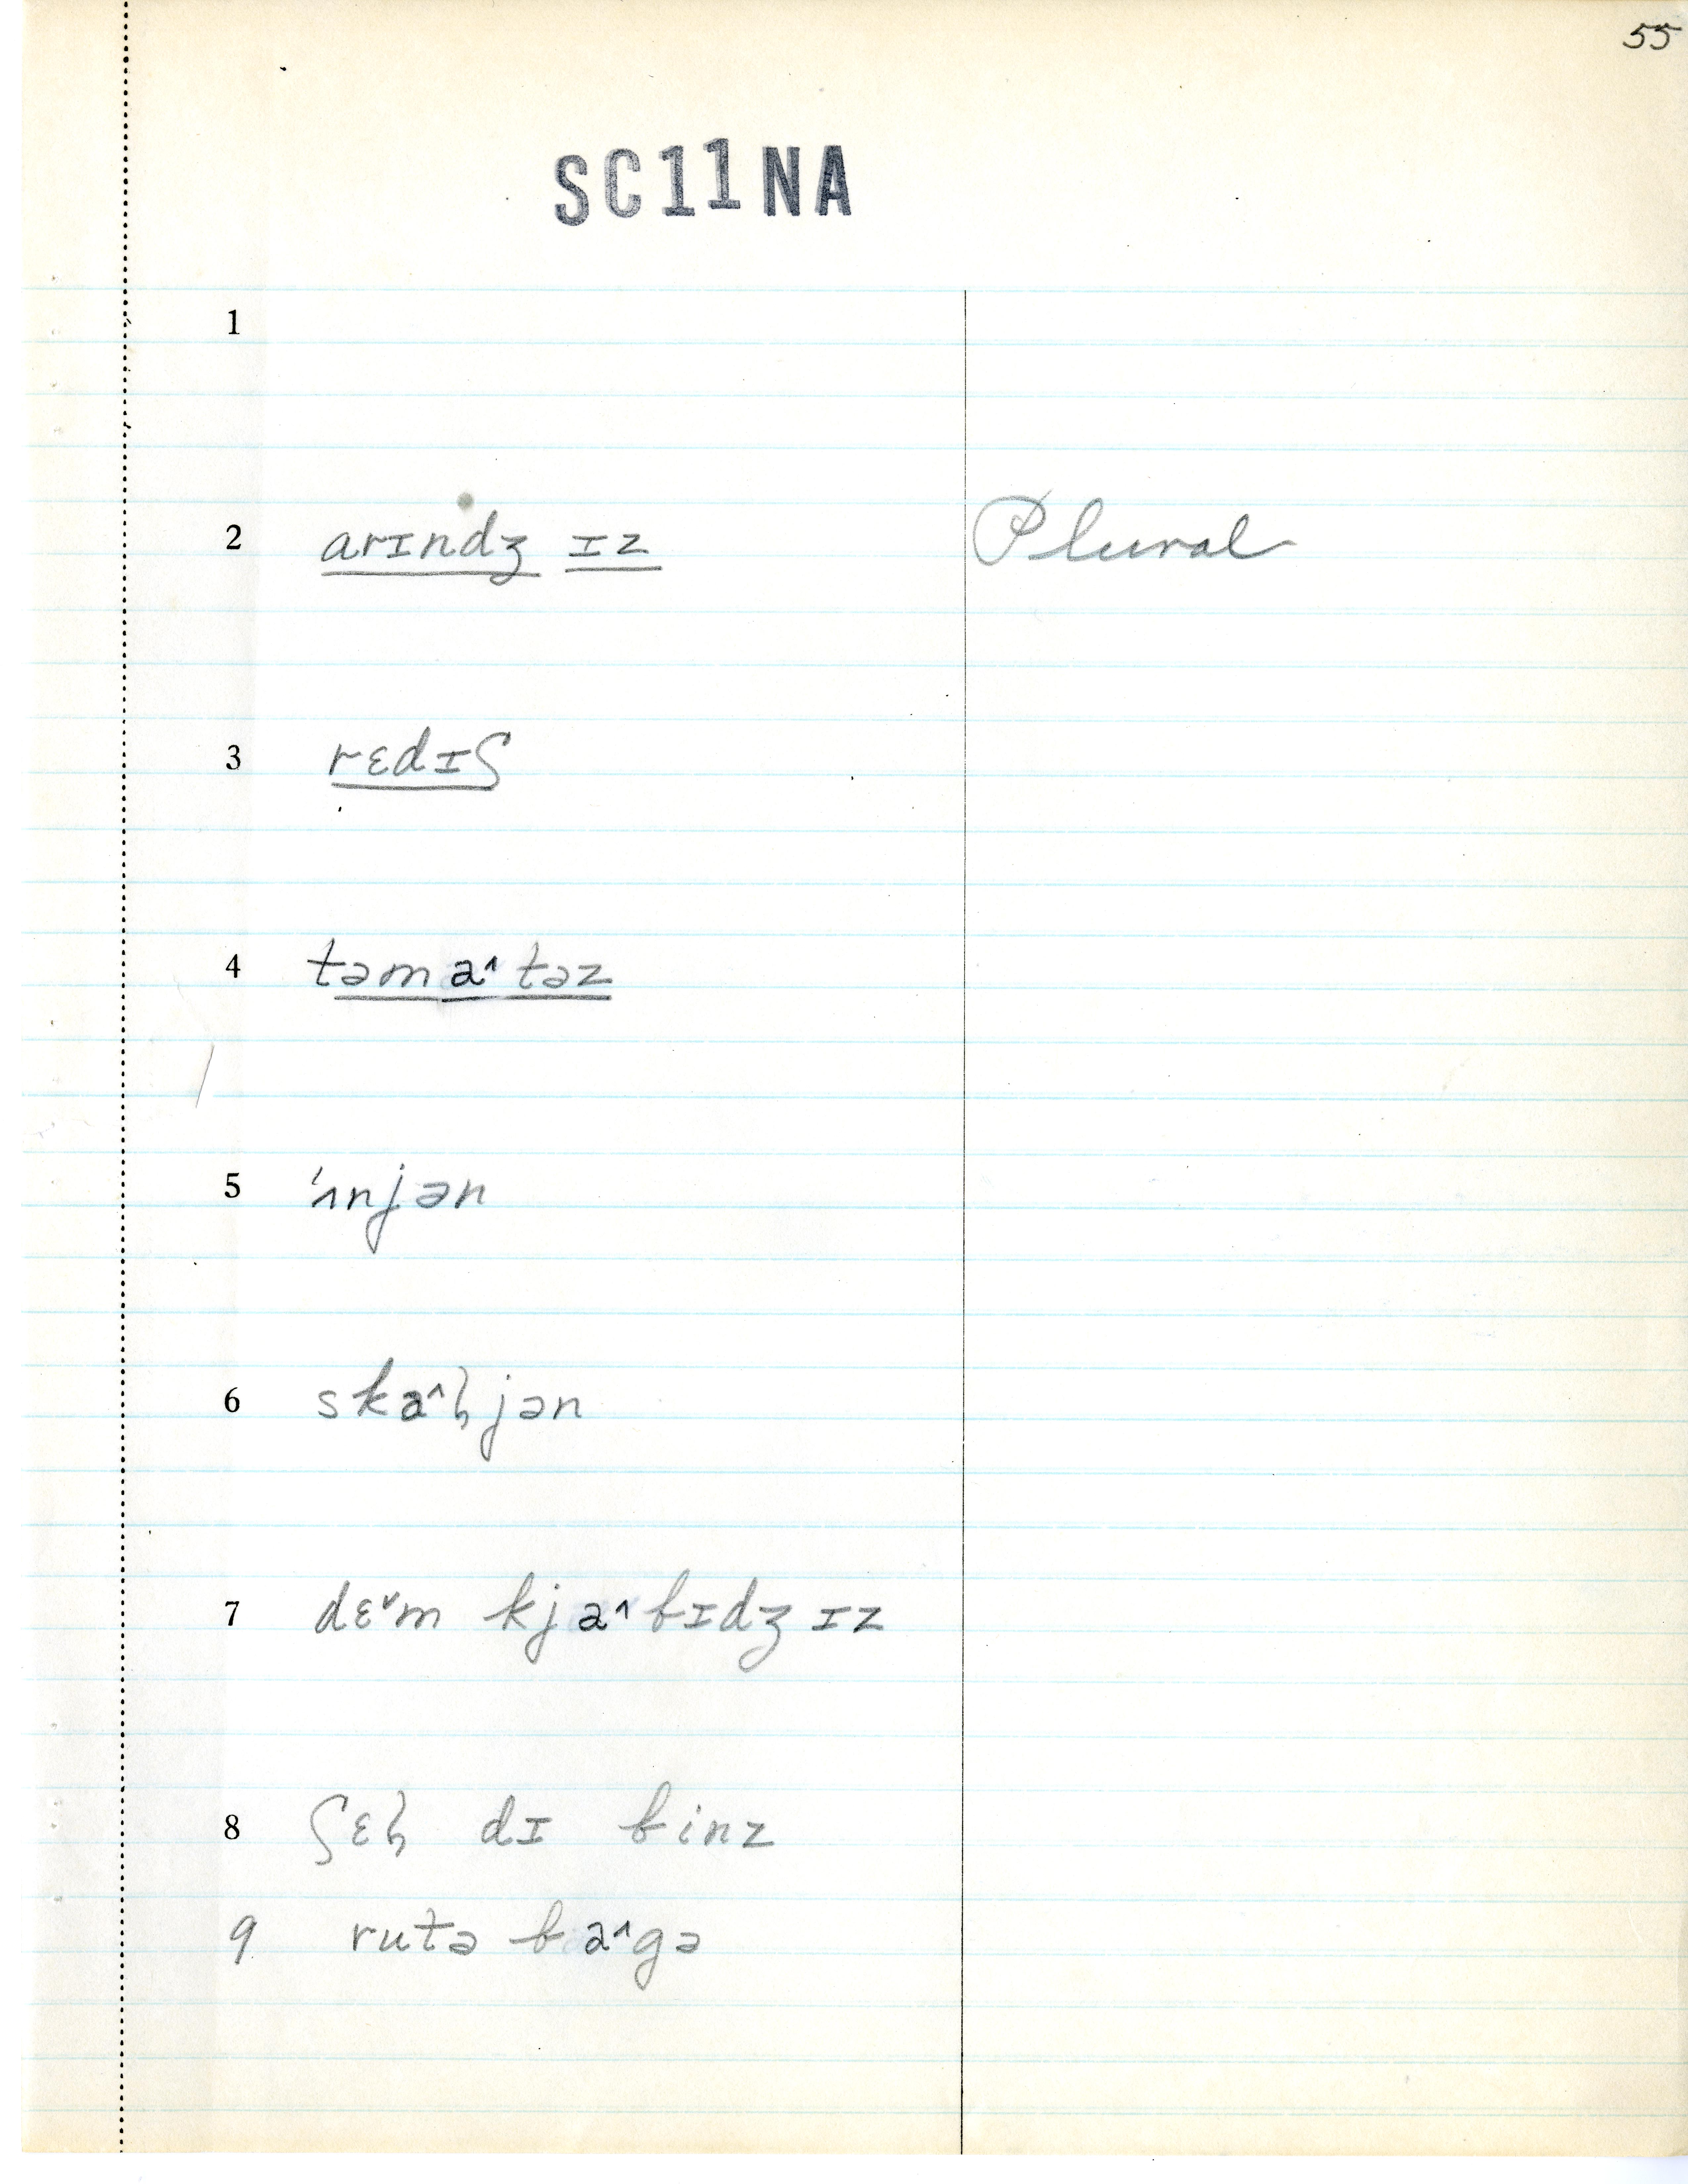 55
SC11NA
1
2 arɪndʒ ɪz Plural
3 rɛdɪʃ
4 təmaˆtəz
5 'ʌnjən
6 skaˆɫjən
7 dɛˇm kjaˆbɪdʒ ɪz
8 ʃɛɫ dɪ binz
9 rutə baˆgə